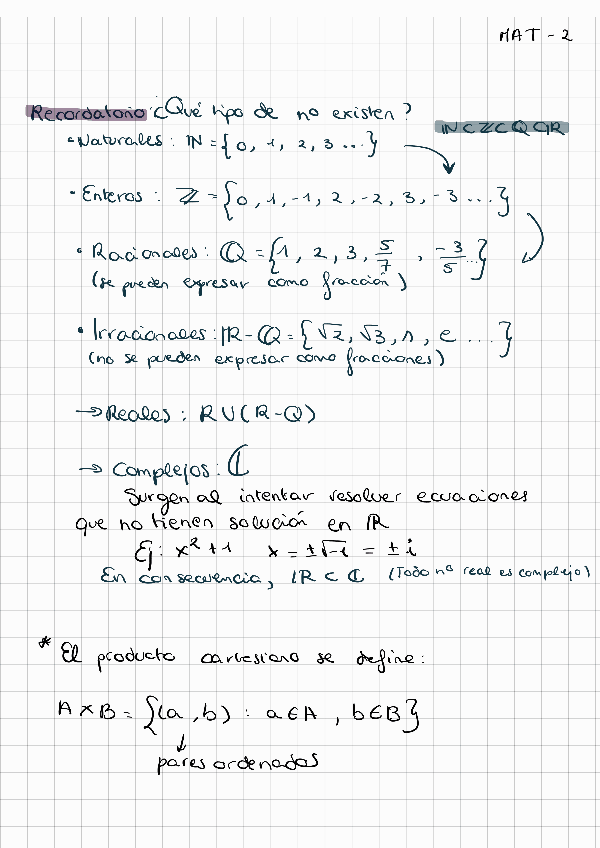 MAT - 2
Recordatorio ¿Qué tipo de nº existen?
• Naturales: ℕ = {0, 1, 2, 3 ...}
ℕ ⊂ ℤ ⊂ ℚ ⊂ ℝ
• Enteros: ℤ = {0, 1, -1, 2, -2, 3, -3 ...}
• Racionales: ℚ = {1, 2, 3, 5/7, -3/5 ...}
(se pueden expresar como fracción)
• Irracionales: ℝ-ℚ = {√2, √3, π, e ...}
(no se pueden expresar como fracciones)
→ Reales: R ∪ (R-Q)
→ Complejos: ℂ
Surgen al intentar resolver ecuaciones
que no tienen solución en ℝ
Ej: x² + 1 x = ±√-1 = ± i
En consecuencia, ℝ ⊂ ℂ (Todo nº real es complejo)
* El producto cartesiano se define:
A × B = {(a, b) : a ∈ A, b ∈ B}
↓
pares ordenados